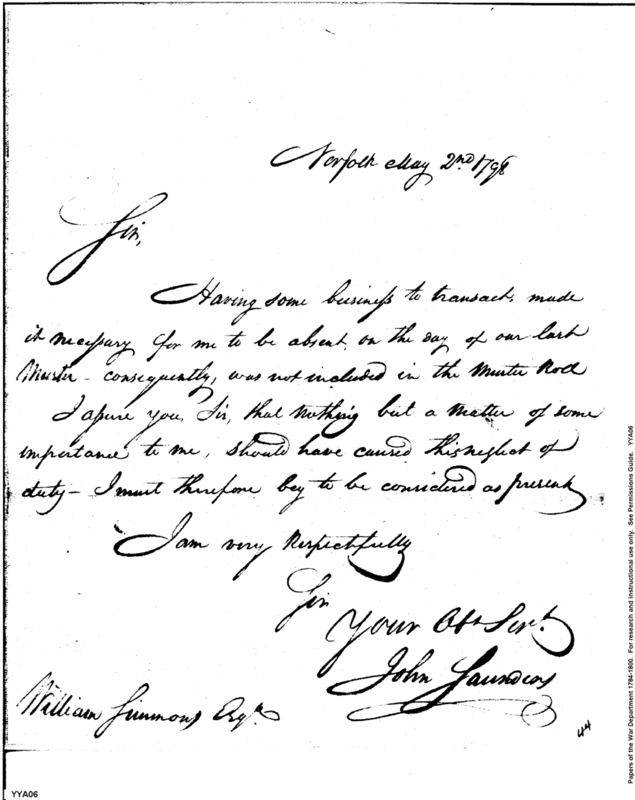 Norfolk May 2nd. 1798
Sir,
Having some business to transact, made
it necessary for me to be absent on the day of our last
Muster - consequently, was not included in the Muster Roll
I assure you, Sir, that nothing but a Matter of some
importance to me, should have caused this neglect of
duty - I must therefore beg to be considered as present
I am very Respectfully
Sir
Your Obt. Servt.
John Saunders
William Simmons Esqr.
44
YYA06
Papers of the War Department 1784-1800. For research and instructional use only. See Permissions Guide. YYA06